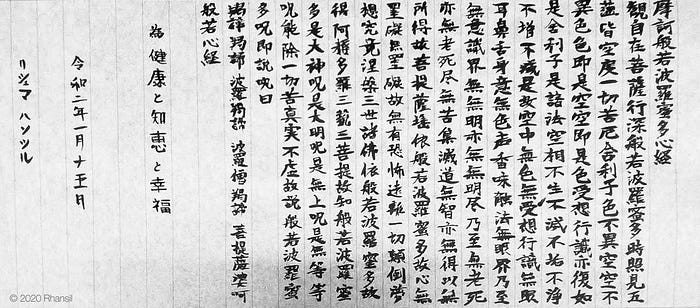 摩訶般若波羅蜜多心経
観自在菩薩行深般若波羅蜜多時照見五
蘊皆空度一切苦厄舎利子色不異空空不
異色色即是空空即是色受想行識亦復如
是舎利子是諸法空相不生不滅不垢不浄
不増不減是故空中無色無受想行識無眼
耳鼻舌身意無色声香味触法無眼界乃至
無意識界無無明亦無無明尽乃至無老死
亦無老死尽無苦集滅道無智亦無得以無
所得故菩提薩埵依般若波羅蜜多故心無
罣礙無罣礙故無有恐怖遠離一切顛倒夢
想究竟涅槃三世諸佛依般若波羅蜜多故
得阿耨多羅三藐三菩提故知般若波羅蜜
多是大神呪是大明呪是無上呪是無等等
呪能除一切苦真実不虚故説般若波羅蜜
多呪即説呪曰
羯諦 羯諦 波羅羯諦 波羅僧羯諦 菩提薩婆呵
般若心経
為健康と知恵と幸福
令和二年一月十五日
リシマ ハンツル
© 2020 Rhansil